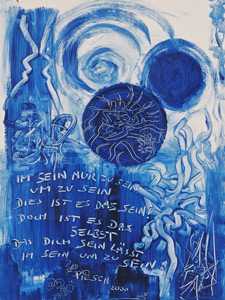 IM SEIN NUR ZU SEIN
UM ZU SEIN
DIES IST ES DAS SEIN!
DOCH IST ES DAS
SELBST
DAS DICH SEIN LÄSST
IM SEIN UM ZU SEIN
PILSCH
2000